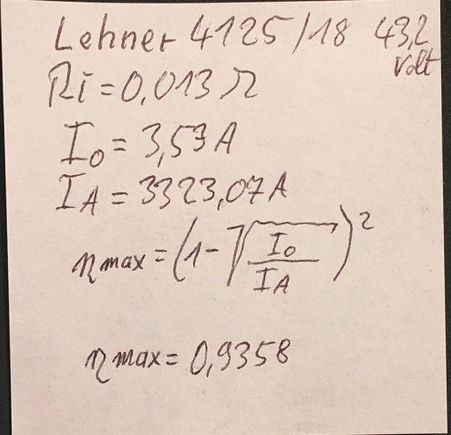 Lehner 4125/18 43,2 Volt
Ri=0,013 Ω
I₀=3,53 A
I_A=3323,07 A
ηmax=(1-√(I₀/I_A))²
ηmax=0,9358